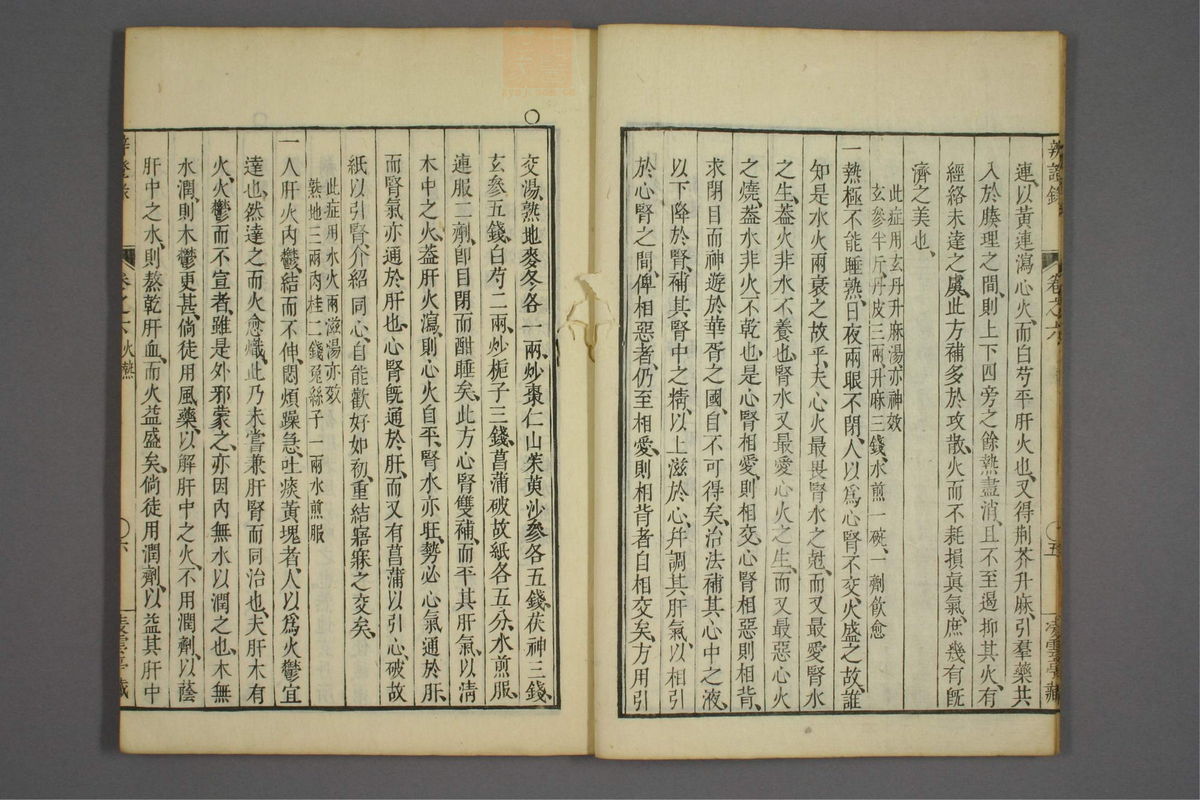 辨證錄
卷之六
五
凌雲亭藏
連以黃連瀉心火而白芍平肝火也又得荆芥升麻引羣藥共
入於腠理之間則上下四旁之餘熱盡消且不至遏抑其火有
經絡未達之虞此方補多於攻散火而不耗損眞氣庶幾有旣
濟之美也
此症用玄丹升麻湯亦神效
玄參半斤丹皮三兩升麻三錢水煎一碗一劑飲愈
一熱極不能睡熟日夜兩眼不閉人以爲心腎不交火盛之故誰
知是水火兩衰之故乎夫心火最畏腎水之尅而又最愛腎水
之生葢火非水不養也腎水又最愛心火之生而又最惡心火
之燒葢水非火不乾也是心腎相愛則相交心腎相惡則相背
求閉目而神遊於華胥之國自不可得矣治法補其心中之液
以下降於腎補其腎中之精以上滋於心幷調其肝氣以相引
於心腎之間俾相惡者仍至相愛則相背者自相交矣方用引
交湯熟地麥冬各一兩炒棗仁山茱萸沙參各五錢茯神三錢
玄參五錢白芍二兩炒梔子三錢菖蒲破故紙各五分水煎服
連服二劑卽目閉而酣睡矣此方心腎雙補而平其肝氣以清
木中之火葢肝火瀉則心火自平腎水亦旺勢必心氣通於肝
而腎氣亦通於肝也心腎旣通於肝而又有菖蒲以引心破故
紙以引腎介紹同心自能歡好如初重結寤寐之交矣
此症用水火兩滋湯亦效
熟地三兩肉桂二錢菟絲子一兩水煎服
一人肝火內鬱結而不伸悶煩躁急吐痰黃塊者人以爲火鬱宜
達也然達之而火愈熾此乃未嘗兼肝腎而同治也夫肝木有
火火鬱而不宣者雖是外邪蒙之亦因內無水以潤之也木無
水潤則木鬱更甚倘徒用風藥以解肝中之火不用潤劑以蔭
肝中之水則熬乾肝血而火益盛矣倘徒用潤劑以益其肝中
卷之六 火熱
六
凌雲亭藏